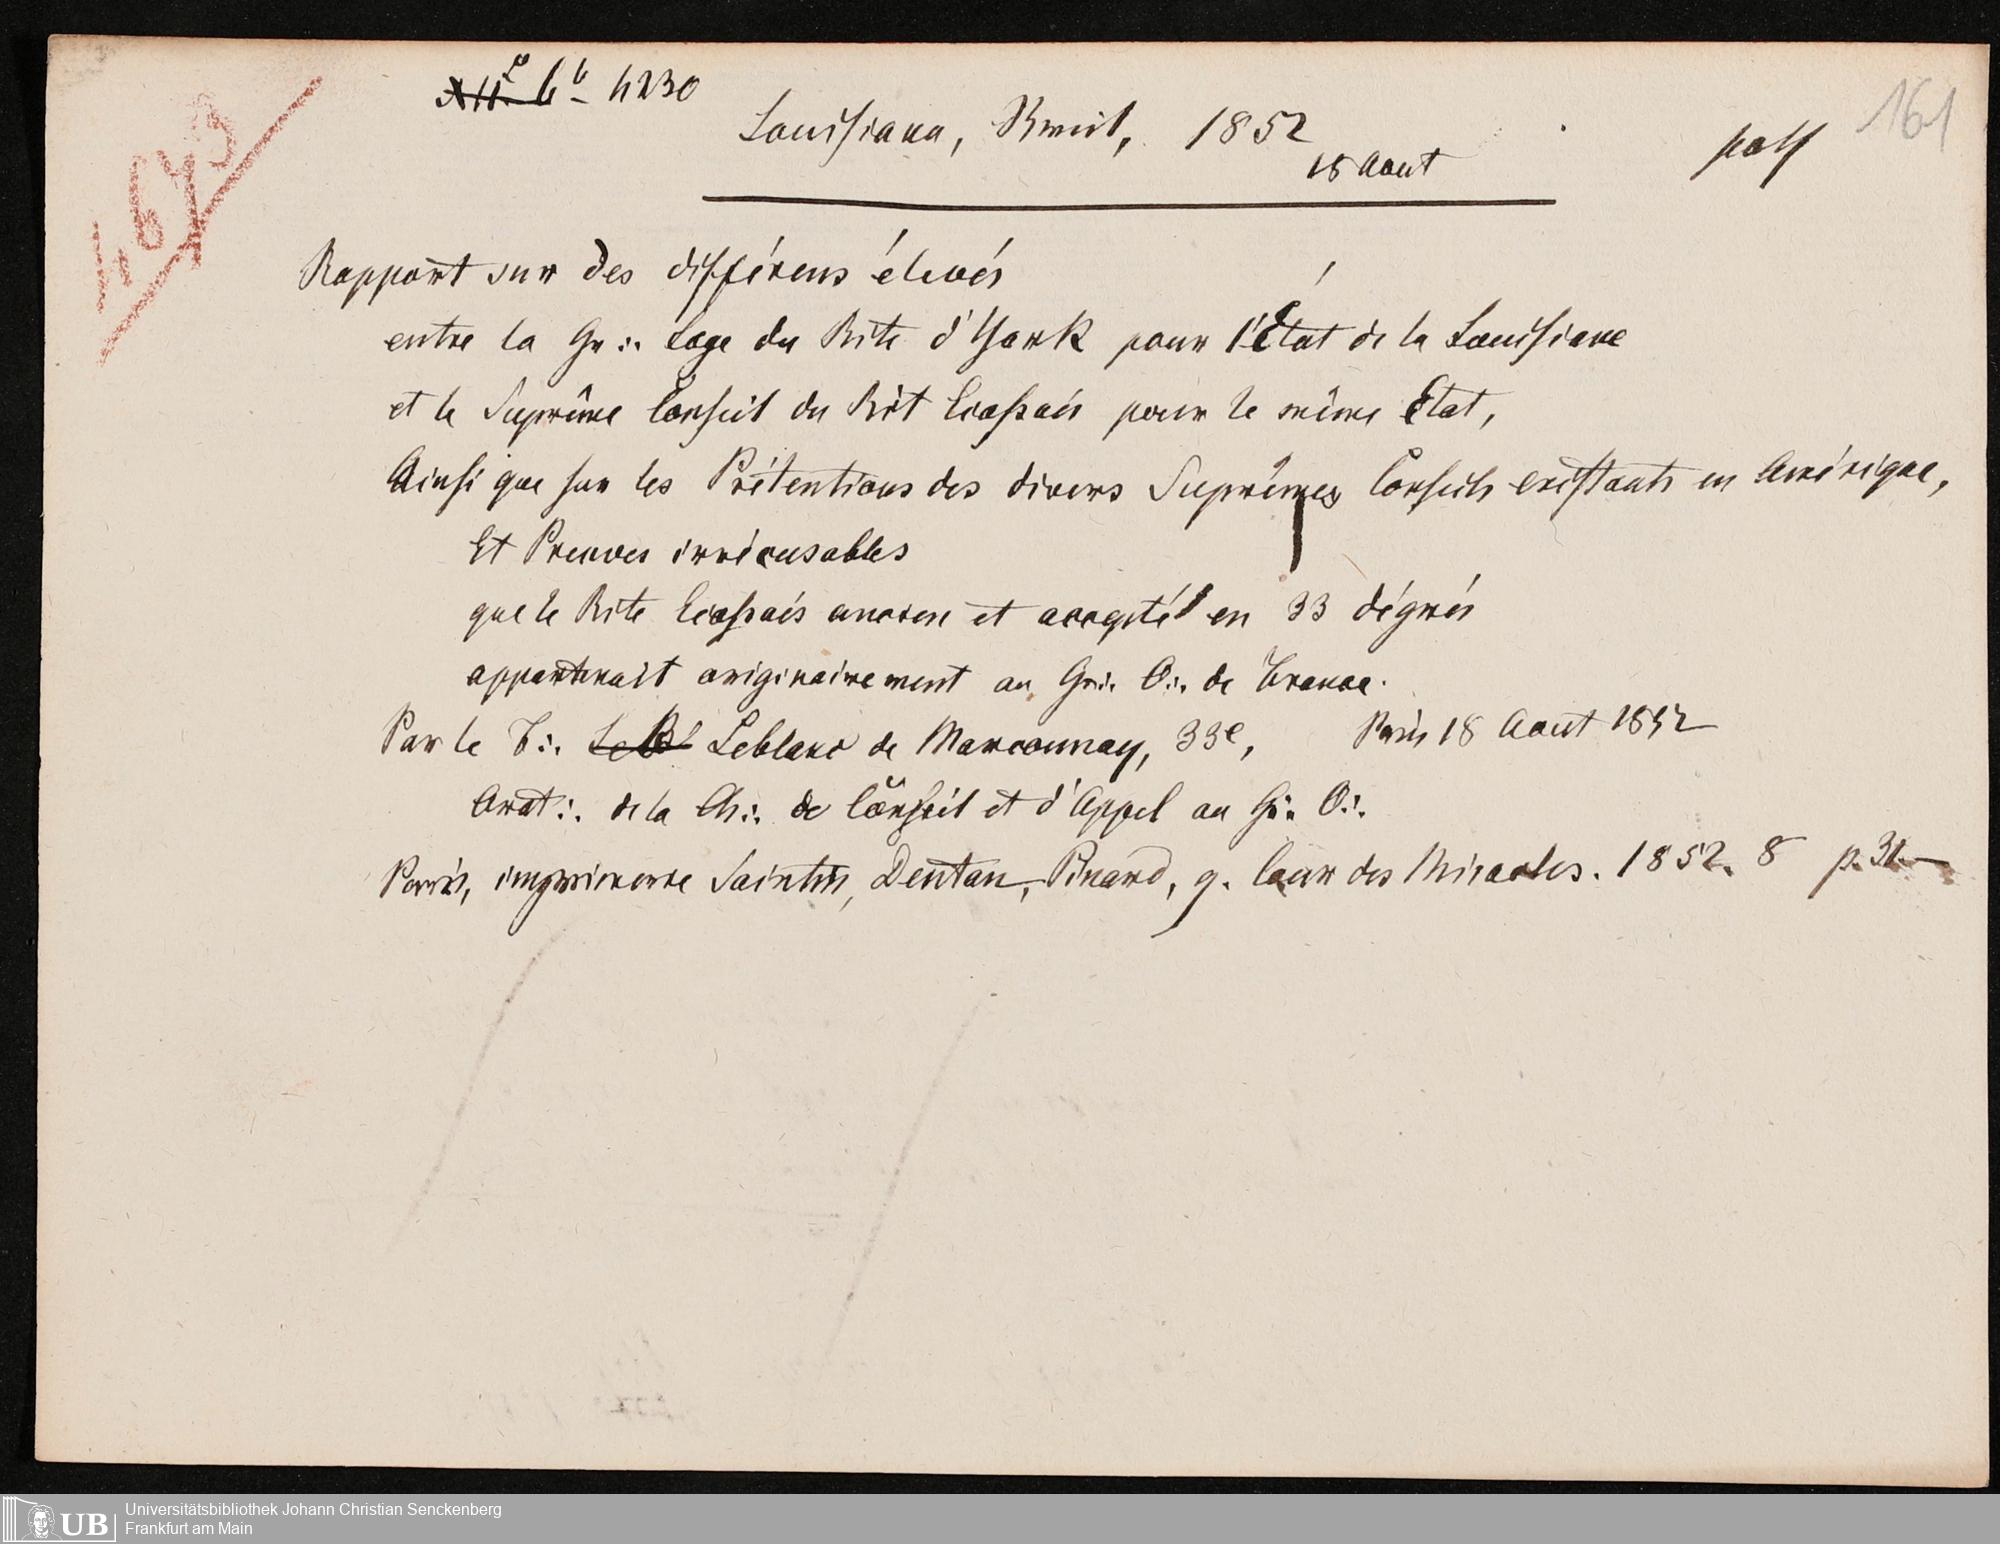 4230
161
Louisiana, 1852
18 Aout
Rapport sur des différens élevés
entre la Gr∴ Loge du Rite d'York pour l'État de la Louisiane
et le Suprême Conseil du Rit Ecossais pour le même Etat,
Ainsi que sur les Prétentions des divers Suprêmes Conseils existants en Amérique,
Et Preuves irrécusables
que le Rite Ecossais ancien et accepté en 33 dégrés
appartenait originairement au Gr∴ O∴ de France.
Par le F∴ Leblanc de Marconnay, 33e, Paris 18 Aout 1852
Orat∴ de la Ch∴ de Conseil et d'Appel au Gr∴ O∴
Paris, imprimerie Saintin, Dentan, Pinard, 9. Cour des Miracles. 1852. 8 p. 31
4673
UB
Universitätsbibliothek Johann Christian Senckenberg
Frankfurt am Main